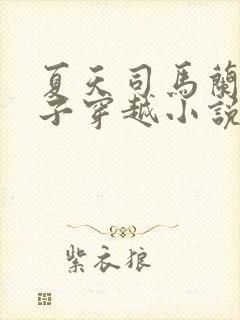 夏天司馬蘭
子穿越小説
紫衣狼